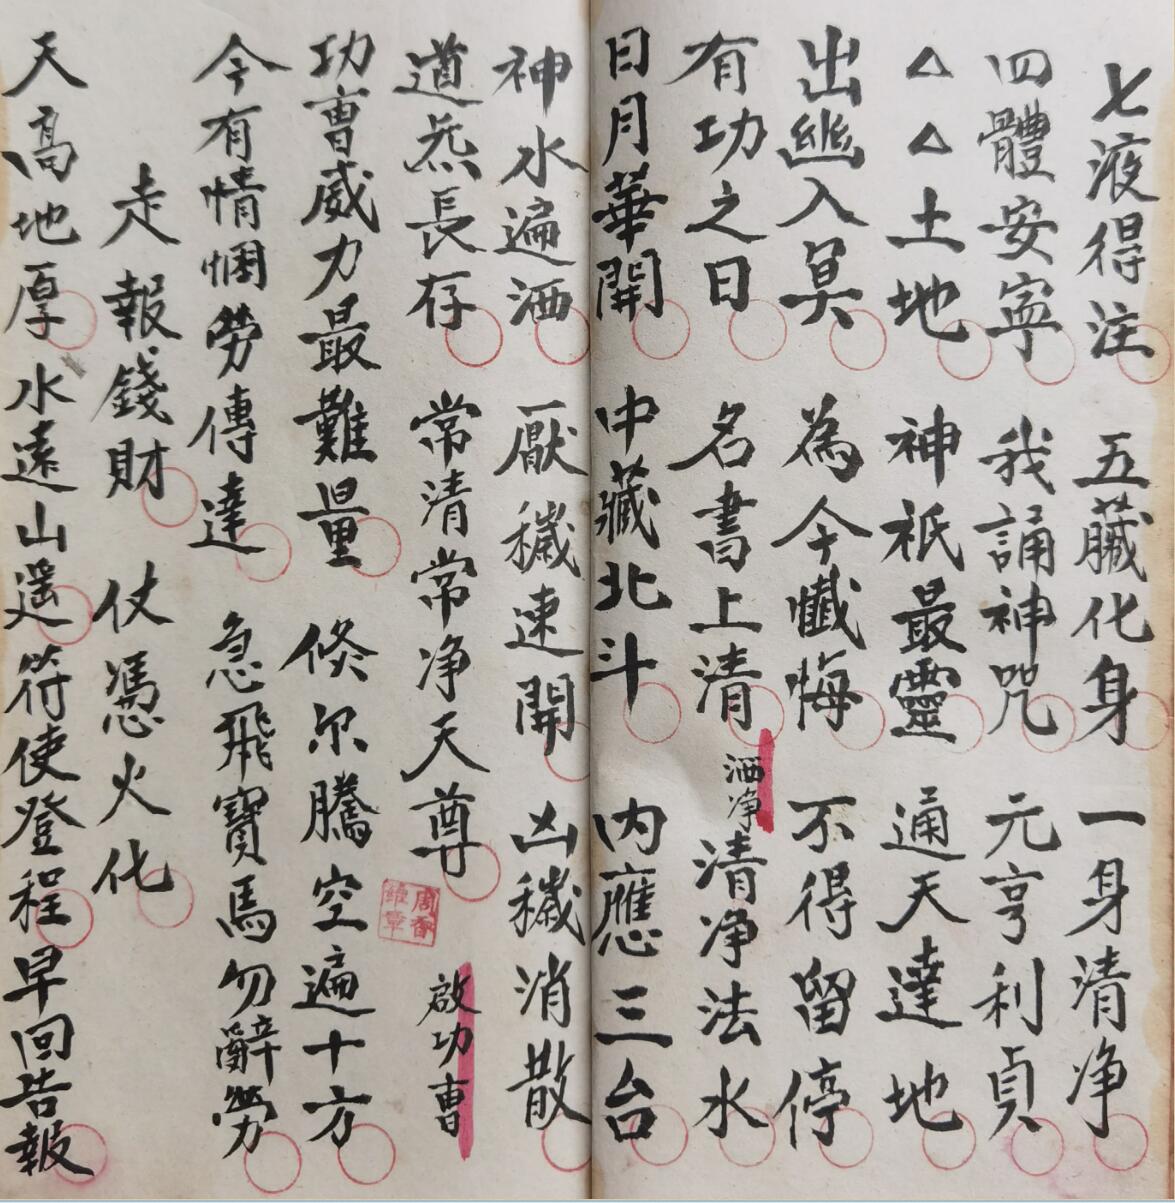 七液得注 五臟化身 一身清净
四體安寧 我誦神咒 元亨利貞
△△土地 神祇最靈 通天達地
出幽入冥 為今懺悔 不得留停
有功之日 名書上清 洒净 清净法水
日月華開 中藏北斗 内應三台
神水遍洒 一厭穢速開 凶穢消散
道炁長存 常清常净天尊 啟功曹
功曹威力最難量 倐尔騰空遍十方
今有情悃勞傳達 急飛寶馬勿辭勞
走報錢財 仗憑火化
天高地厚水遠山遥符使登程早回告報